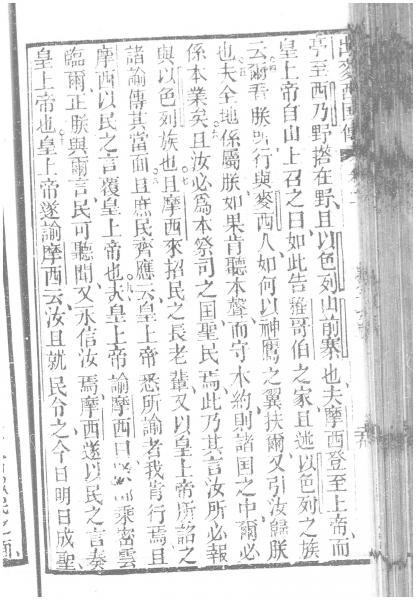 亭至西乃野搭在野且以色列山前寨也夫摩西登至上帝而
皇上帝自山上召之曰如此告雅哥伯之家且述以色列之族
云爾看朕所行與麥西人如何以神鷹之翼扶爾又引汝歸朕
也夫全地係屬朕如果肯聽本聲而守本約則諸国之中爾必
係本業矣且汝必為本祭司之囯聖民焉此乃其言汝所必報
與以色列族也且摩西來招民之長老輩又以皇上帝所諮之
諸諭傳其當面且庶民齊應云皇上帝悉所諭者我肯行焉且
摩西以民之言覆皇上帝也夫皇上帝諭摩西曰 乘密雲
臨爾正朕與爾言民可聽聞又永信汝焉摩西遂以民之言奏
皇上帝也皇上帝遂諭摩西云汝且就民分之今日明日成聖